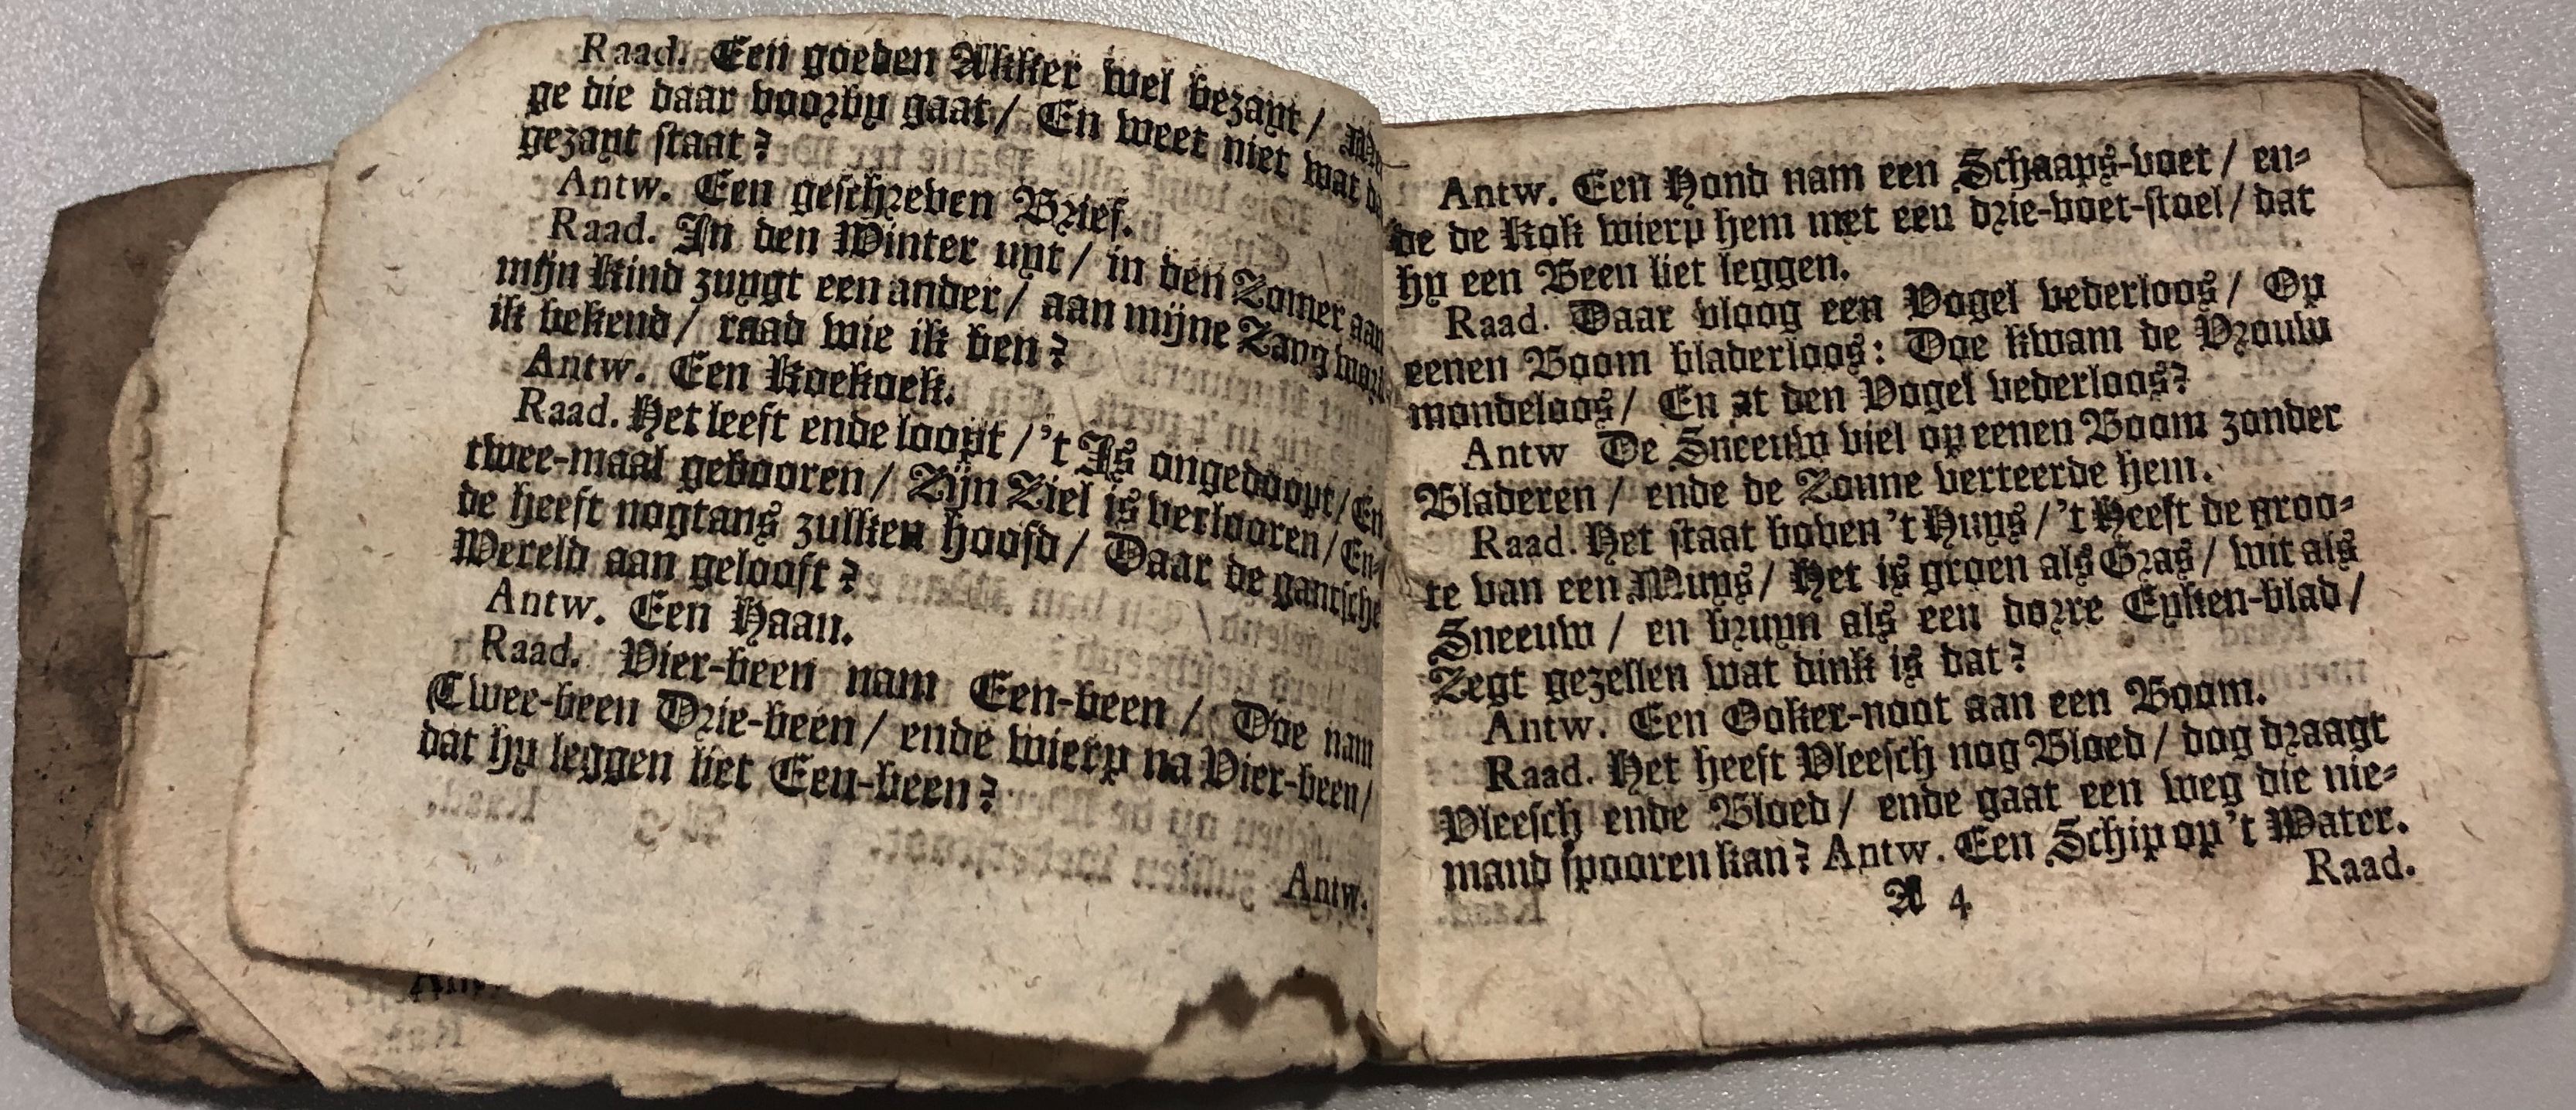 Raad. Een goeden Akker wel bezayt /
ge die daar voorby gaat / En weet niet wat
gezayt staat?
Antw. Een geschreven Brief.
Raad. In den Winter uyt / in den Zomer aan
mijn Kind zuygt een ander / aan mijne Zang
ik bekend / raad wie ik ben?
Antw. Een Koekoek.
Raad. Het leeft ende loopt / 't Is ongedoopt / En
twee-maal gebooren / Zijn Ziel is verlooren / En-
de heeft nogtans zulken hoofd / Daar de gantsche
Wereld aan gelooft?
Antw. Een Haan.
Raad. Vier-been nam Een-been / Doe nam
Twee-been Drie-been / ende wierp na Vier-been /
dat hy leggen liet Een-been?
Antw.
Antw. Een Hond nam een Schaaps-voet / en-
de de Kok wierp hem met een drie-voet-stoel / dat
hy een Been liet leggen.
Raad. Daar vloog een Vogel vederloos / Op
eenen Boom bladerloos: Doe kwam de Vrouw
mondeloos / En at den Vogel vederloos?
Antw De Sneeuw viel op eenen Boom zonder
Bladeren / ende de Zonne verteerde hem.
Raad. Het staat boven 't Huys / 't Heeft de groo-
te van een Muys / Het is groen als Gras / wit als
Sneeuw / en bruyn als een dorre Eyken-blad /
Zegt gezellen wat dink is dat?
Antw. Een Ooker-noot aan een Boom.
Raad. Het heeft Vleesch nog Bloed / dog draagt
Vleesch ende Bloed / ende gaat een weg die nie-
mand spooren kan? Antw. Een Schip op 't Water.
A 4 Raad.